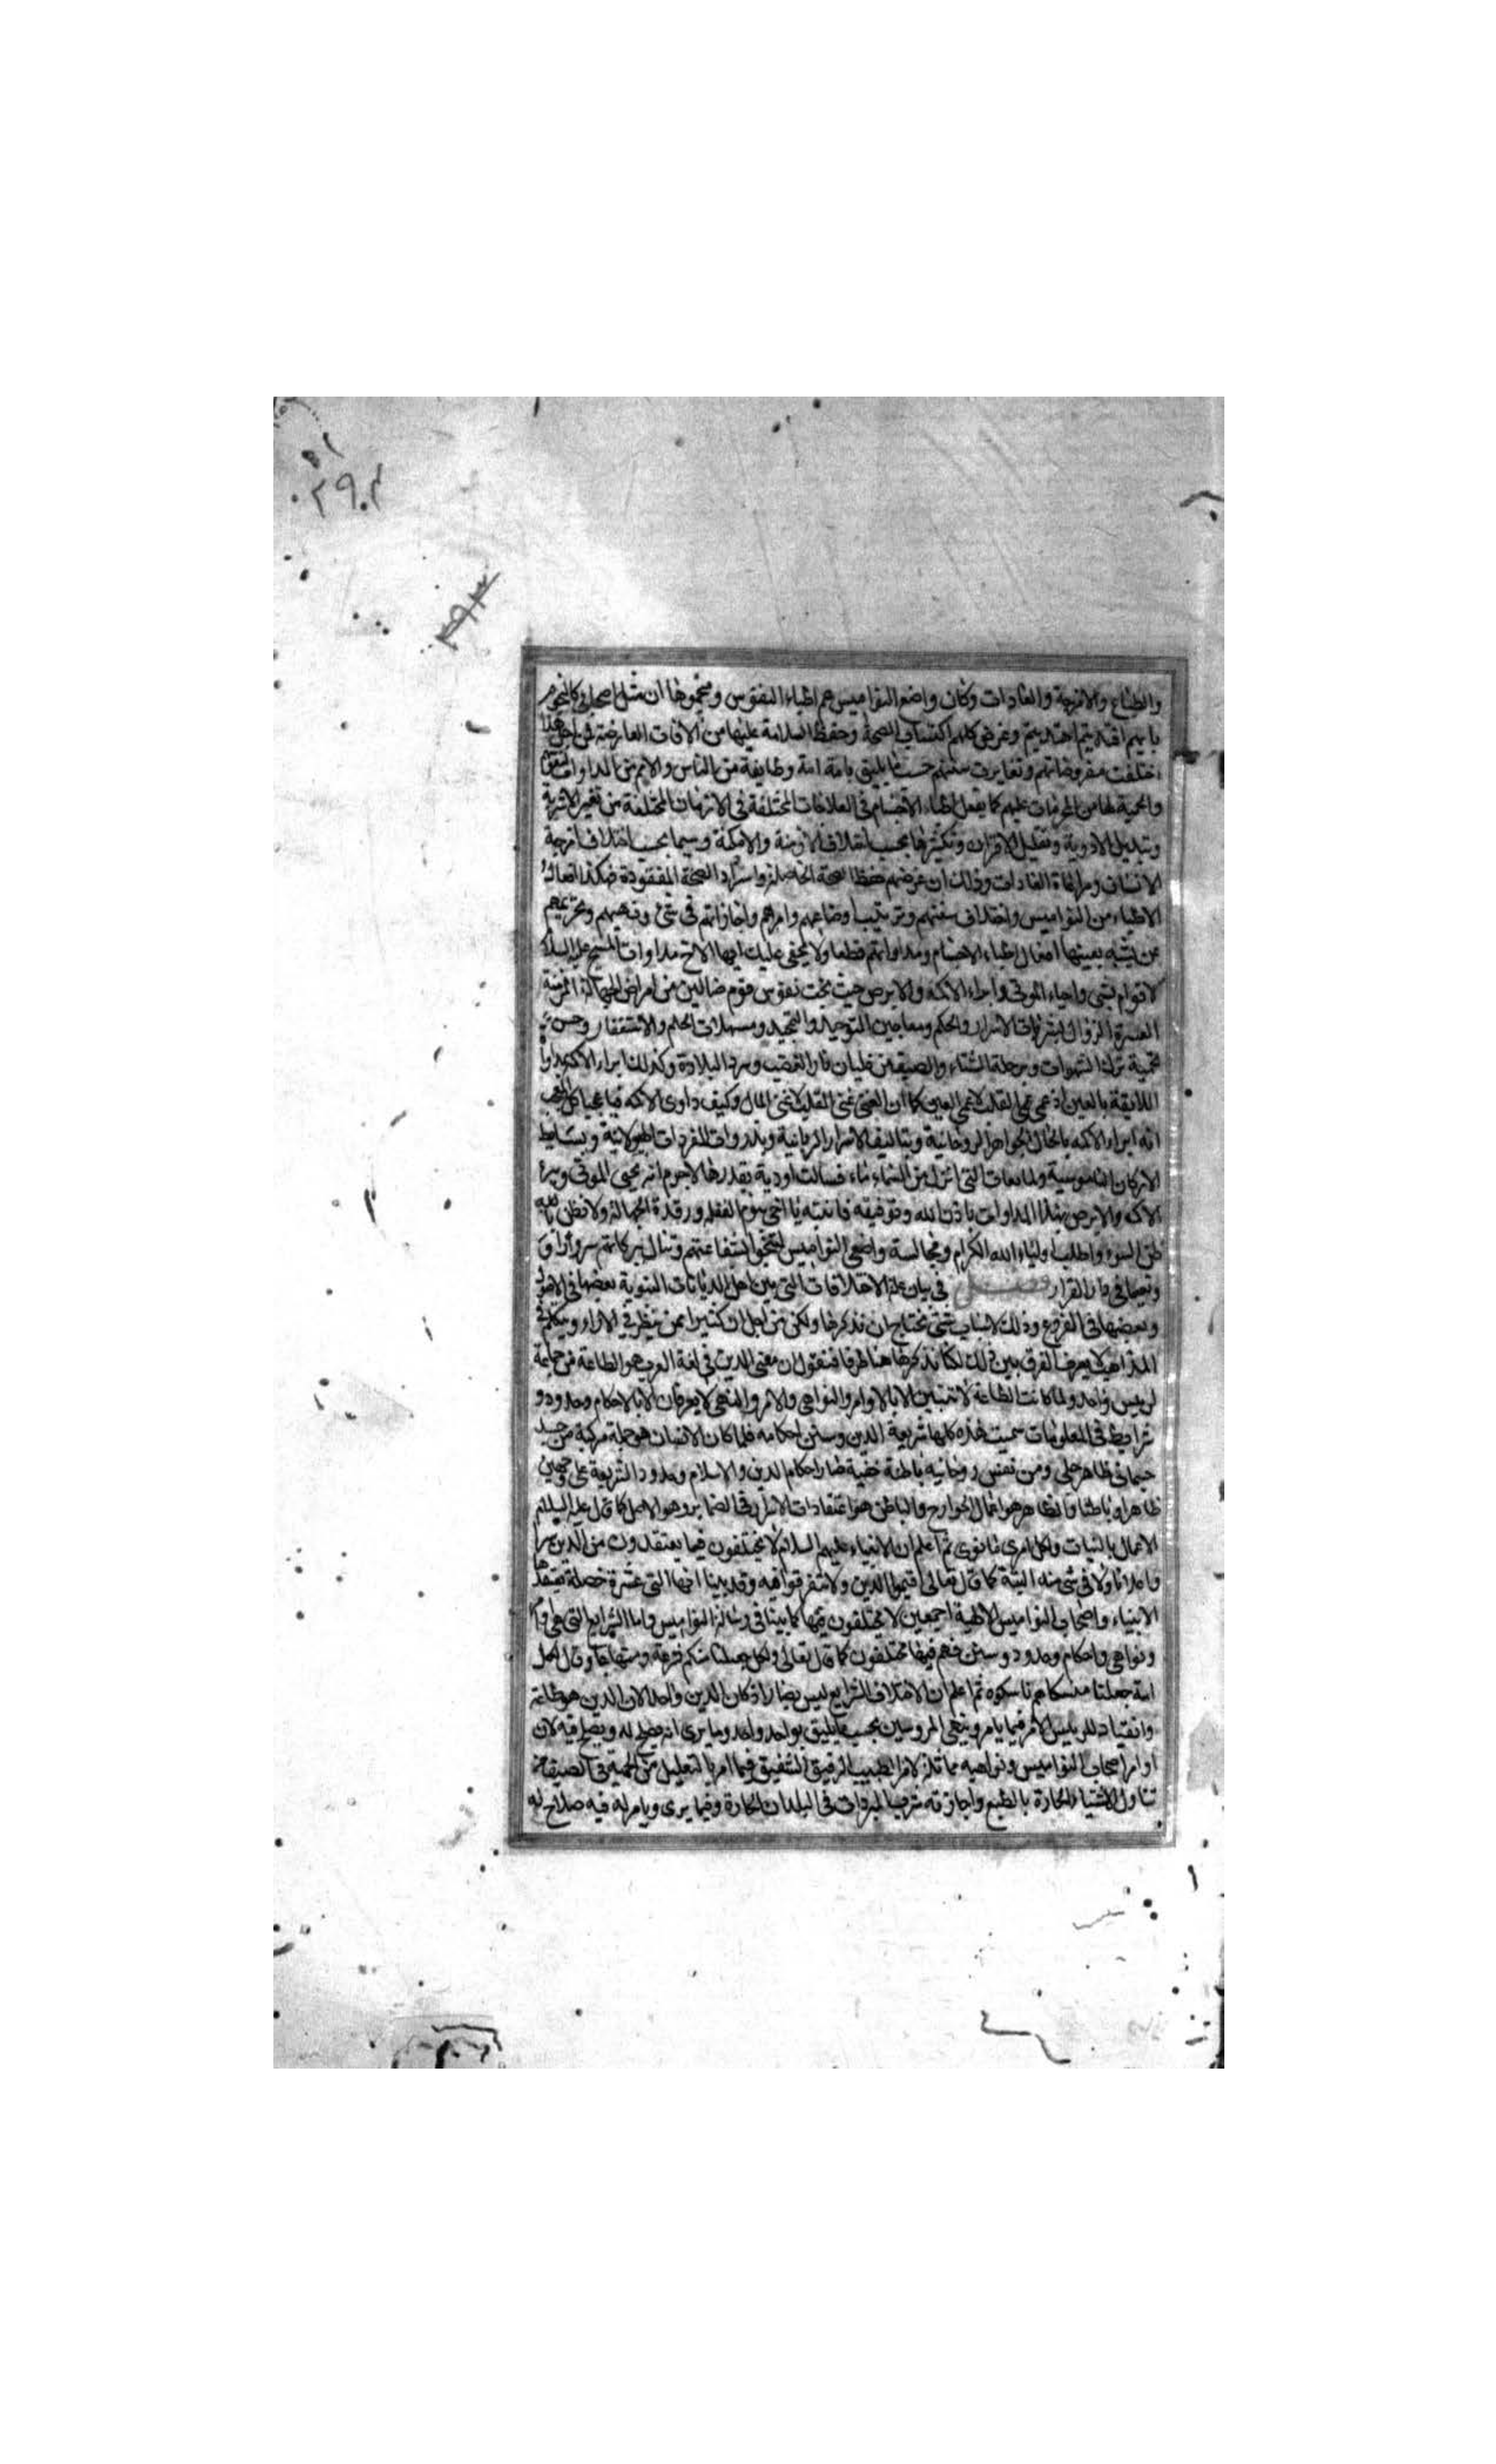 ٢٩٠
٢٩٣
والطباع والامزجة والعادات وكان واضع النواميس هم اطباء النفوس ومنجموها ان مثل اصحابي كالنجوم
بايهم اقتديتم اهتديتم وغرض كلهم اكتساب الصحة وحفظ السلامة عليها من الآفات العارضة فمن اجل هذا
اختلفت مفروضاتهم وتغايرت سننهم حسب ما يليق بامة امة وطايفة من الناس والامم من المداواة
والحمية لها من المحرمات عليهم كما يفعل اطباء الاجسام في العلاجات المختلفة في الازمان المختلفة من تغيير الاشربة
وتبديل الادوية وتقليل الاوزان وتكثيرها بحسب اختلاف الازمنة والامكنة وسيما بحسب اختلاف امزجة
الانسان ومراعاة العادات وذلك ان غرضهم حفظ الصحة الحاصلة واسترداد الصحة المفقودة فهكذا افعال
الاطباء من النواميس واختلاف سننهم وترتيب اوضاعهم وامرهم واجازاتهم في شئ ونهيهم وتحريمهم
عن يشبه بعينها افعال اطباء الاجسام ومداواتهم قطعا ولا يخفى عليك ايها الاخ مداواة المسيح عليه السلام
لاقوام شتى واحياء الموتى وابراء الاكمه والابرص حيث نجت نفوس قوم ضالين من امراض الجهالة المزمنة
العسرة الزوال بشربات الاسرار والحكم ومعاجين التوحيد والتمجيد ومسهلات الحلم والاستغفار وحسن
محمية ترك الشهوات ورحلة الشتاء والصيف من غليان نار الغضب وبرد البلادة وكذلك ابراء الاكمه
اللايقة بالعين اذ عمي عمى القلب لا عمى العين كما ان الغنى غنى القلب لا غنى المال وكيف داوى الاكمه فيا عجبا كل العجب
انه ابراء الاكمه بالحال الجواهر الروحانية وبتاليف الاسرار الربانية وبذروات المفردات الهيولانية وبسايط
الاركان الناموسية والمايعات التي انزل من السماء ماء فسالت اودية بقدرها لا جرم انه يحيى الموتى ويبرئ
الاكمه والابرص بهذا المداواة باذن الله وتوفيقه فانتبه يا اخي من نوم الغفلة ورقدة الجهالة ولا تظن بالله
ظن السوء واطلب اولياء الله الكرام ومجالسة واضعي النواميس لتنجو بشفاعتهم وتنال ببركاتهم سرورا
ونعيما في دار القرار فصل في بيان علة الاختلافات التي بين اهل الديانات النبوية بعضها في الاصول
وبعضها في الفروع وذلك لاسباب شتى نحتاج ان نذكرها ولكن من اجل ان كثيرا ممن ينظر في الاراء ويتكلم في
المذاهب لا يعرف الفرق بين ذلك لكنا نذكرها هنا طرفا فنقول ان معنى الدين في لغة العرب هو الطاعة من جماعة
لرييس واحد ولما كانت الطاعة لا تتبين الا بالاوامر والنواهي والامر والنهي لا يعرفان الا بالاحكام وحدود و
شرايط في المعلومات سميت هذه كلها شريعة الدين وسنن احكامه فلما كان الانسان هو جملة مركبة من جسد
جسماني ظاهر جلي ومن نفس روحانيه باطنة خفية صار احكام الدين والاسلام وحدود الشريعة على وجهين
ظاهرا وباطنا والظاهر هو اعمال الجوارح والباطن هو اعتقادات الاسرار في الضماير وهو الاصل كما قال عليه السلام
الاعمال بالنيات ولكل امرئ ما نوى ثم اعلم ان الانبياء عليهم السلام لا يختلفون فيما يعتقدون من الدين سرا
واعلانا ولا في شئ منه البتة كما قال تعالى اقيموا الدين ولا تتفرقوا فيه وقد بينا انها اثنى عشرة خصلة يعتقدها
الانبياء واصحاب النواميس الالهية اجمعين لا يختلفون فيها كما بينا في رسالة النواميس واما الشرايع التي هي اوامر
ونواهي واحكام وحدود وسنن فهم فيها مختلفون كما قال تعالى ولكل جعلنا منكم شرعة ومنهاجا وقال لكل
امة جعلنا منسكا هم ناسكوه ثم اعلم ان الاختلاف الشرايع ليس بضار اذ كان الدين واحدا لان الدين هو طاعة
وانقياد للرييس الامر فيما يامر وينهى المروسين بحسب ما يليق بواحد واحد وما يرى انه يصلح له ويصلح فيه لان
اوامر اصحاب النواميس ونواهيه مماثلة لامر الطبيب الرفيق الشفيق فيما امر بالتعليل من الحمية في الصيف عن
تناول الاشياء الحارة بالطبع واجازته شرب المبردات في البلدان الحارة وفيما يرى ويامر له فيه صلاح له